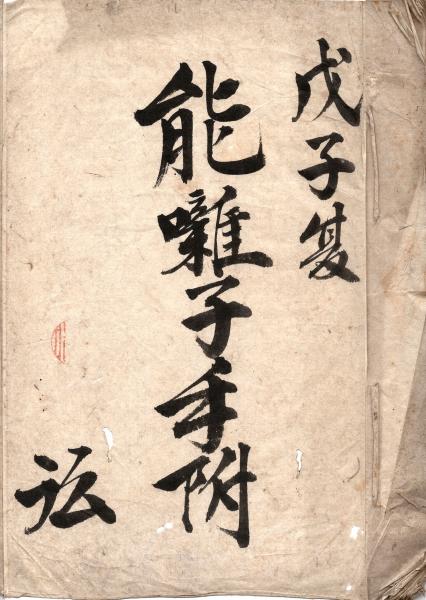 戊子夏
能囃子手附